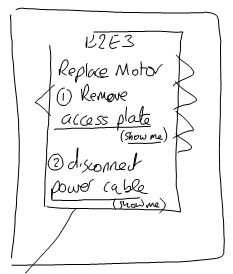 B2E3
Replace Motor
① Remove
access plate
(show me)
② disconnect
power cable
(show me)